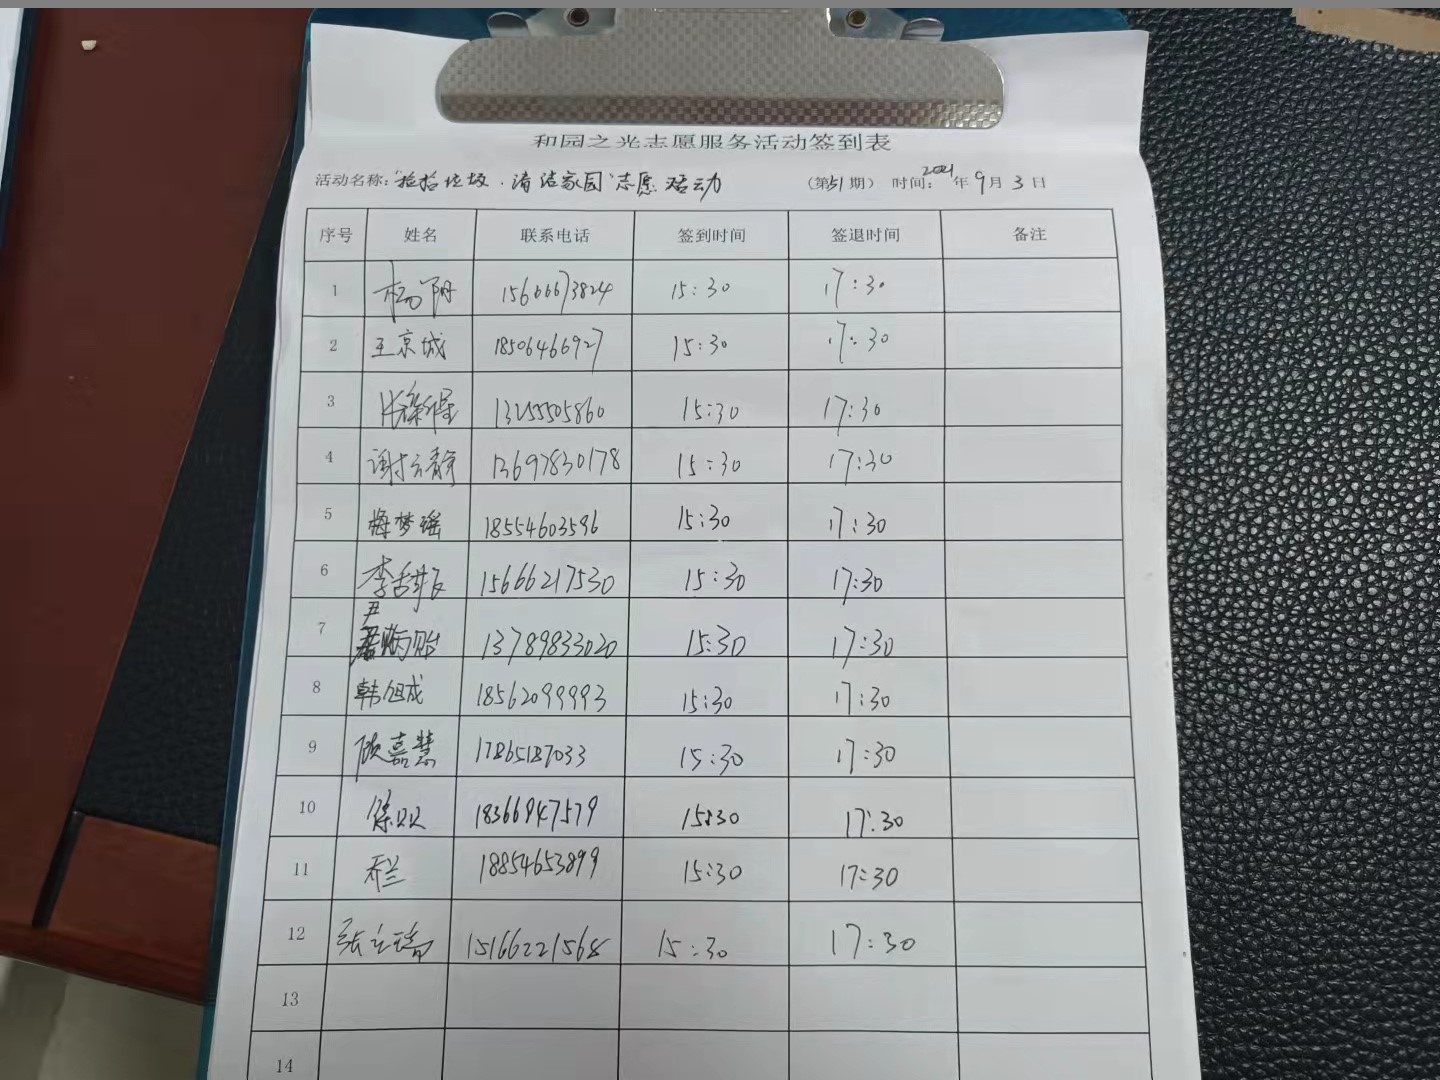 和园之光志愿服务活动签到表
活动名称：“捡拾垃圾·清洁家园”志愿活动 （第51期） 时间：2021年9月3日
序号 姓名 联系电话 签到时间 签退时间 备注
1 杨阳 15666673824 15:30 17:30
2 王京城 18506466927 15:30 17:30
3 13255505860 15:30 17:30
4 谢云静 13697830178 15:30 17:30
5 梅梦瑶 18554603596 15:30 17:30
6 李 15666217530 15:30 17:30
7 尹 13789833020 15:30 17:30
8 韩旭成 18562099993 15:30 17:30
9 嘉慧 17865187033 15:30 17:30
10 徐贝贝 18366947579 15:30 17:30
11 乔兰 18854653899 15:30 17:30
12 张立瑞 15166221568 15:30 17:30
13
14